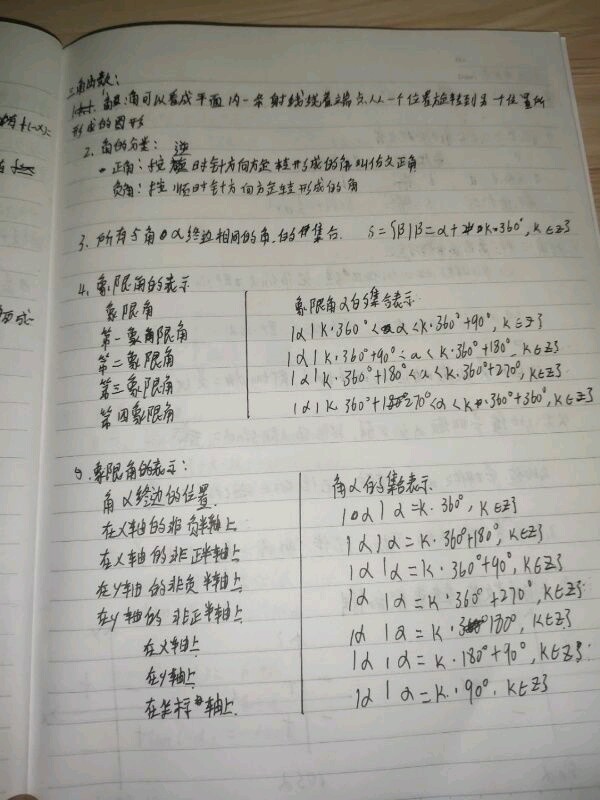 三角函数:
角:角可以看成平面内一条射线绕着端点从一个位置旋转到另一个位置所
形成的图形
2. 角的分类: 逆
正角: 按 时针方向旋转形成的角叫做正角
负角: 按顺时针方向旋转形成的角
3. 所有与角α终边相同的角的集合. S={β|β=α+k·360°, k∈Z}
4. 象限角的表示
象限角 象限角α的集合表示
第一象限角 {α|k·360°<α<k·360°+90°, k∈Z}
第二象限角 {α|k·360°+90°<α<k·360°+180°, k∈Z}
第三象限角 {α|k·360°+180°<α<k·360°+270°, k∈Z}
第四象限角 {α|k·360°+270°<α<k·360°+360°, k∈Z}
5. 象限角的表示:
角α终边的位置 角α的集合表示
在x轴的非负半轴上 {α|α=k·360°, k∈Z}
在x轴的非正半轴上 {α|α=k·360°+180°, k∈Z}
在y轴的非负半轴上 {α|α=k·360°+90°, k∈Z}
在y轴的非正半轴上 {α|α=k·360°+270°, k∈Z}
在x轴上 {α|α=k·180°, k∈Z}
在y轴上 {α|α=k·180°+90°, k∈Z}
在坐标轴上 {α|α=k·90°, k∈Z}